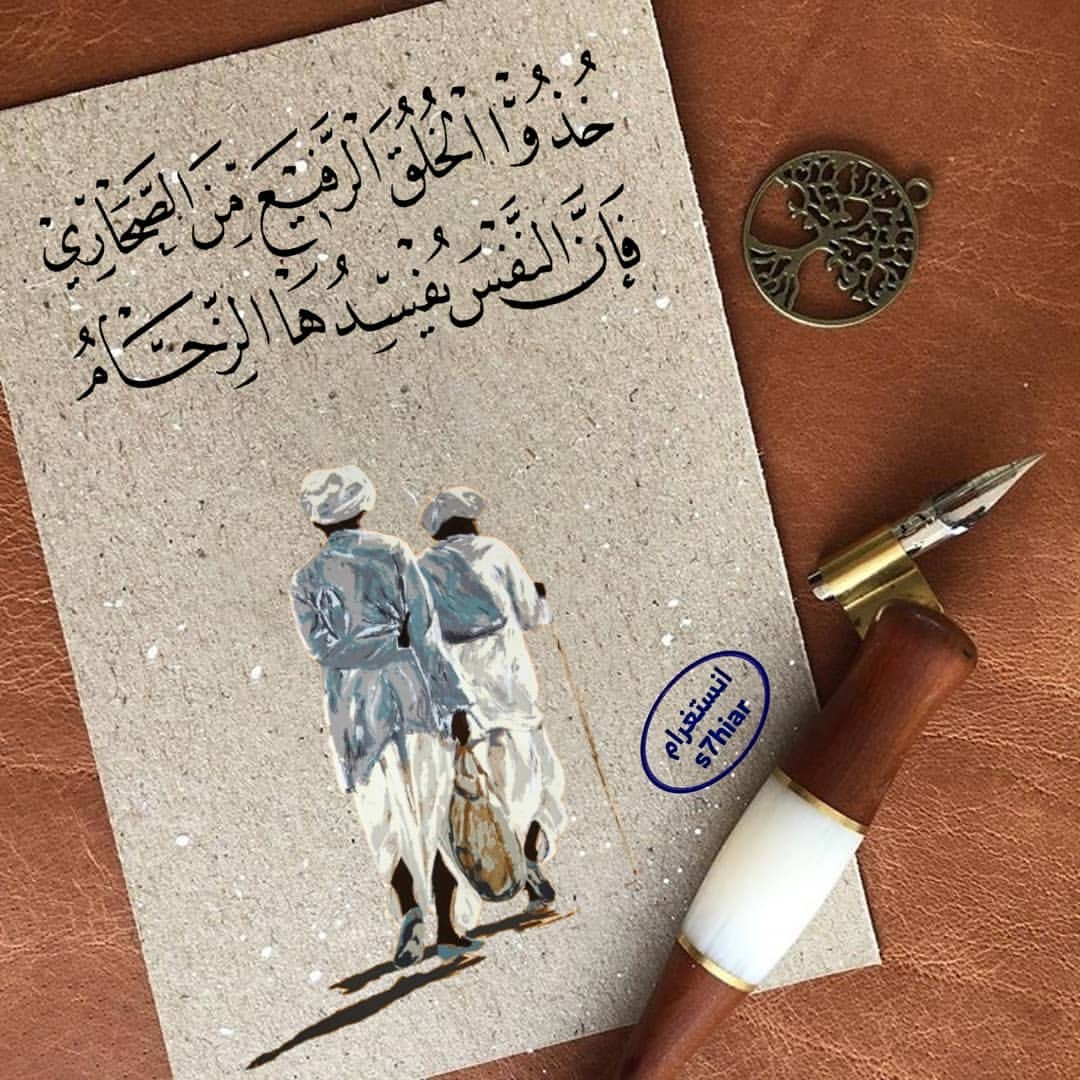 خُذُوا الْخُلُقَ الرَّفِيعَ مِنَ الصَّحَارِي
فَإِنَّ النَّفْسَ يُفْسِدُهَا الزِّحَامُ
انستغرام
s7hiar